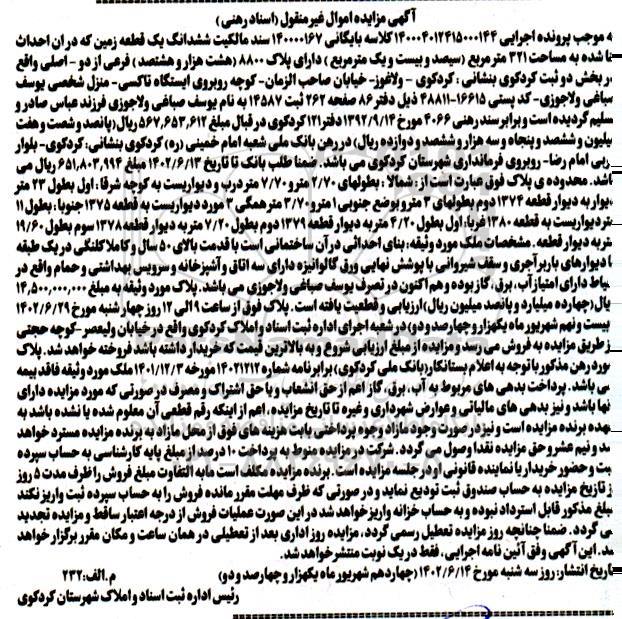 آگهی مزایده اموال غیرمنقول (اسناد رهنی)
ه موجب پرونده اجرایی ۱۴۰۰۰۴۰۱۲۴۱۵۰۰۰۱۴۴ کلاسه بایگانی ۱۴۰۰۰۱۶۷ سند مالکیت ششدانگ یک قطعه زمین که در ان احداث
نا شده به مساحت ۳۲۱ متر مربع (سیصد و بیست و یک مترمربع) دارای پلاک ۸۸۰۰ (هشت هزار و هشتصد) فرعی از دو - اصلی واقع
ر بخش دو ثبت کردکوی بنشانی : کردکوی - ولاغوز- خیابان صاحب الزمان- کوچه روبروی ایستگاه تاکسی- منزل شخصی یوسف
صباغی ولاجوزی- کد پستی ۱۶۶۱۵-۴۸۸۱۱ ذیل دفتر ۸۶ صفحه ۲۶۲ ثبت ۱۴۵۸۷ به نام یوسف صباغی ولاجوزی فرزند عباس صادر و
سلیم گردیده است و برابر سند رهنی ۴۰۶۶ مورخ ۱۳۹۲/۹/۱۳ دفتر ۱۲۱ کردکوی در قبال مبلغ ۵۶۷,۶۵۳,۶۱۲ ریال (پانصد و شصت و هفت
میلیون و ششصد و پنجاه و سه هزار و ششصد و دوازده ریال) در رهن بانک ملی شعبه امام خمینی (ره) کردکوی بنشانی: کردکوی- بلوار
ربی امام رضا- روبروی فرمانداری شهرستان کردکوی می باشد. ضمنا طلب بانک تا تاریخ ۱۴۰۲/۶/۱۳ مبلغ ۶۵۱,۸۰۳,۹۹۴ ریال می
باشد. محدوده ی پلاک فوق عبارت است از : شمالا : بطولهای ۲/۷۰ متر و ۷/۷۰ متر درب و دیواریست به کوچه شرقا : اول بطول ۲۳ متر
یوار به دیوار قطعه ۱۳۷۴ دوم بطولهای ۳ متر و بوضع جنوبی ۱ متر و ۳/۷۰ متر همگی ۳ مورد دیواریست به قطعه ۱۳۷۵ جنوبا : بطول ۱۱
متر دیواریست به قطعه ۱۳۸۰ غربا : اول بطول ۴/۲۰ متر به دیوار قطعه ۱۳۷۹ دوم بطول ۷/۲۰ متر به دیوار قطعه ۱۳۷۸ سوم بطول ۱۹/۶۰
متر به دیوار قطعه . مشخصات ملک مورد وثیقه: بنای احداثی در آن ساختمانی است با قدمت بالای ۵۰ سال و کاملا کلنگی در یک طبقه
ا دیوارهای باربر آجری و سقف شیروانی با پوشش نهایی ورق گالوانیزه دارای سه اتاق و آشپزخانه و سرویس بهداشتی و حمام واقع در
یاط دارای امتیاز آب، برق، گاز بوده و هم اکنون در تصرف یوسف صباغی ولاجوزی می باشد. پلاک مورد وثیقه به مبلغ ۱۴,۵۰۰,۰۰۰,۰۰۰
یال (چهارده میلیارد و پانصد میلیون ریال) ارزیابی و قطعیت یافته است. پلاک فوق از ساعت ۹ الی ۱۲ روز چهار شنبه مورخ ۱۴۰۲/۶/۲۹
بیست و نهم شهریور ماه یکهزار و چهارصد و دو) در شعبه اجرای اداره ثبت اسناد و املاک کردکوی واقع در خیابان ولیعصر- کوچه حجتی
ز طریق مزایده به فروش می رسد و مزایده از مبلغ ارزیابی شروع و به بالاترین قیمت که خریدار داشته باشد فروخته خواهد شد. پلاک
ورد رهن مذکور با توجه به اعلام بستانکار (بانک ملی کردکوی) برابر نامه شماره ۱۴۰۲۱۲۱۲ مورخه ۱۴۰۱/۱۲/۳ ملک مورد وثیقه فاقد بیمه
ی باشد. پرداخت بدهی های مربوط به آب، برق، گاز اعم از حق انشعاب و یا حق اشتراک و مصرف در صورتی که مورد مزایده دارای
نها باشد و نیز بدهی های مالیاتی و عوارض شهرداری و غیره تا تاریخ مزایده، اعم از اینکه رقم قطعی آن معلوم شده یا نشده باشد به
هده برنده مزایده است و نیز در صورت وجود مازاد وجوه پرداختی بابت هزینه های فوق از محل مازاد به برنده مزایده مسترد خواهد
د و نیم عشر و حق مزایده نقدا وصول می گردد. شرکت در مزایده منوط به پرداخت ۱۰ درصد از مبلغ پایه کارشناسی به حساب سپرده
بت و حضور خریدار یا نماینده قانونی او در جلسه مزایده است. برنده مزایده مکلف است مابه التفاوت مبلغ فروش را ظرف مدت ۵ روز
ز تاریخ مزایده به حساب صندوق ثبت تودیع نماید و در صورتی که ظرف مهلت مقرر مانده فروش را به حساب سپرده ثبت واریز نکند
مبلغ مذکور قابل استرداد نبوده و به حساب خزانه واریز خواهد شد در این صورت عملیات فروش از درجه اعتبار ساقط و مزایده تجدید
ی گردد. ضمنا چنانچه روز مزایده تعطیل رسمی گردد، مزایده روز اداری بعد از تعطیلی در همان ساعت و مکان مقرر برگزار خواهد
شد. این آگهی وفق آئین نامه اجرایی، فقط در یک نوبت منتشر خواهد شد.
تاریخ انتشار: روز سه شنبه مورخ ۱۴۰۲/۶/۱۴ (چهاردهم شهریور ماه یکهزار و چهارصد و دو) م.الف: ۲۳۲
رئیس اداره ثبت اسناد و املاک شهرستان کردکوی